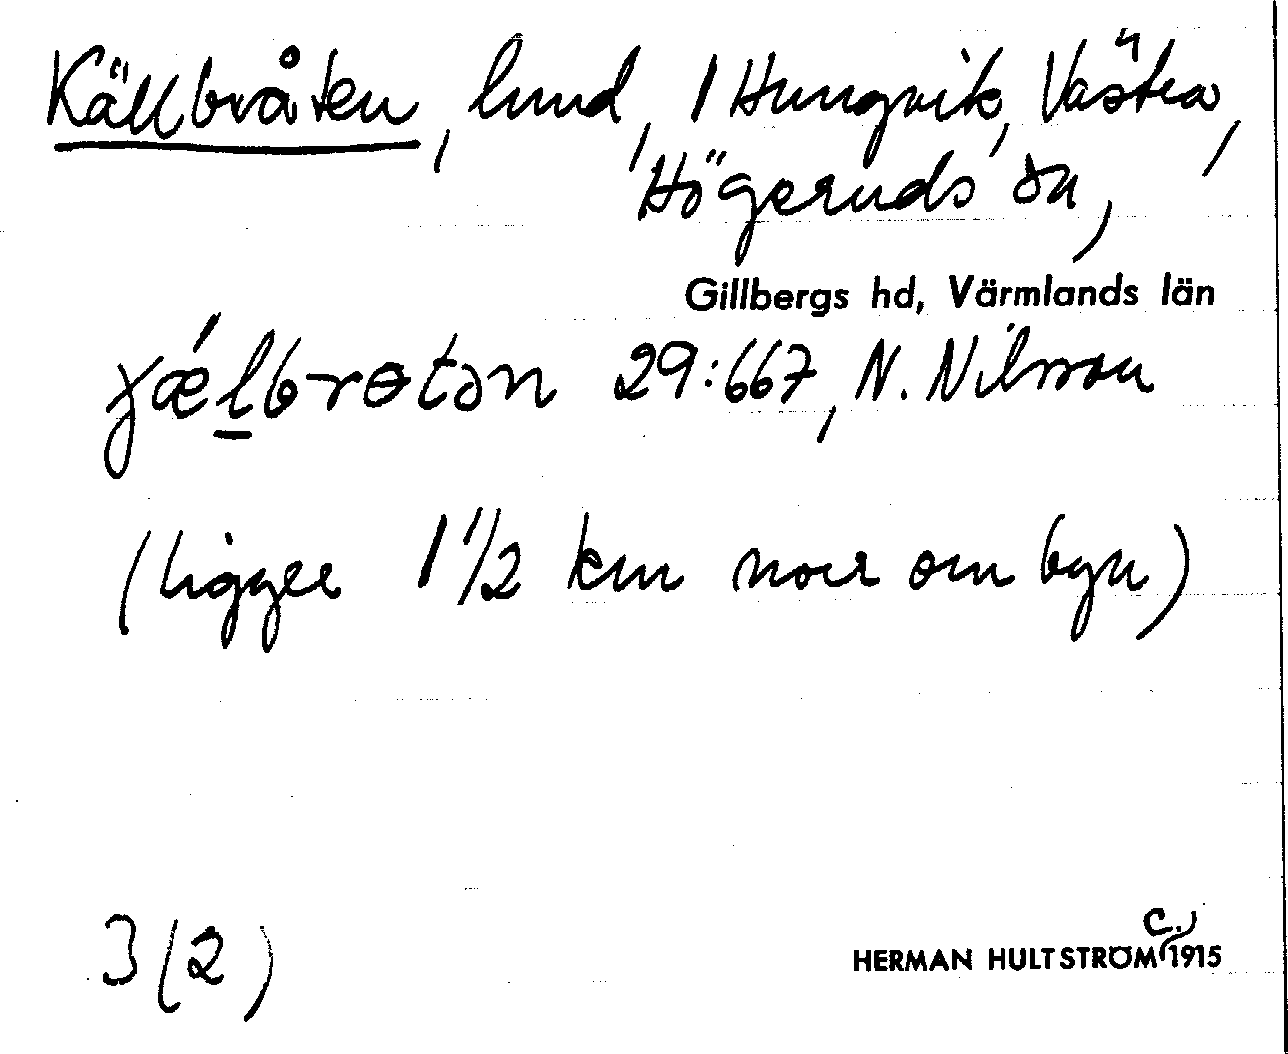 Källbråten, lund, 1 Hungvik, Västra,
Högeruds sn,
Gillbergs hd, Värmlands län
ɣǽlbrɵtən 29:667, N. Nilsson
(ligger 1 1/2 km norr om byn)
3 (2)
HERMAN HULTSTRÖM c. 1915